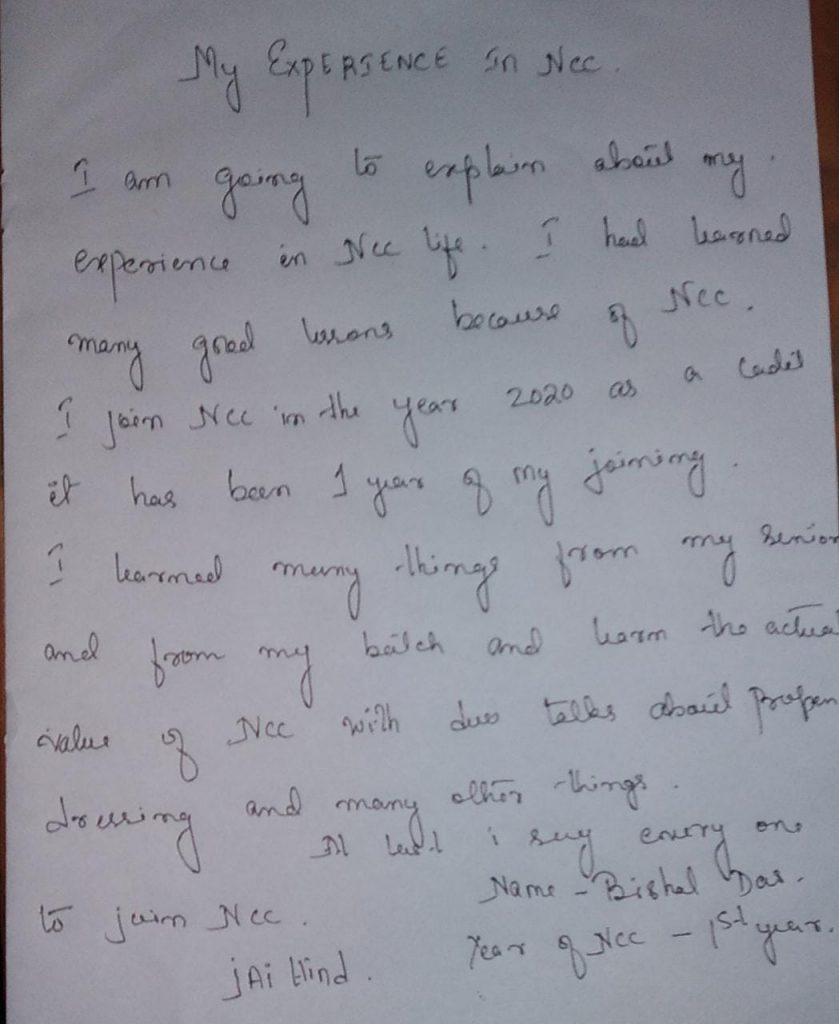 My EXPERIENCE In Ncc.
I am going to explain about my.
experience in Ncc life. I had learned
many good lessons because of Ncc.
I join Ncc in the year 2020 as a Cadet
it has been 1 year of my joining.
I learned many things from my senior
and from my batch and learn the actual
value of Ncc with dues talks about proper
dressing and many other things.
At last i say every one
to join Ncc.
Name - Bishal Das.
jAi Hind.
Year of Ncc - 1st year.